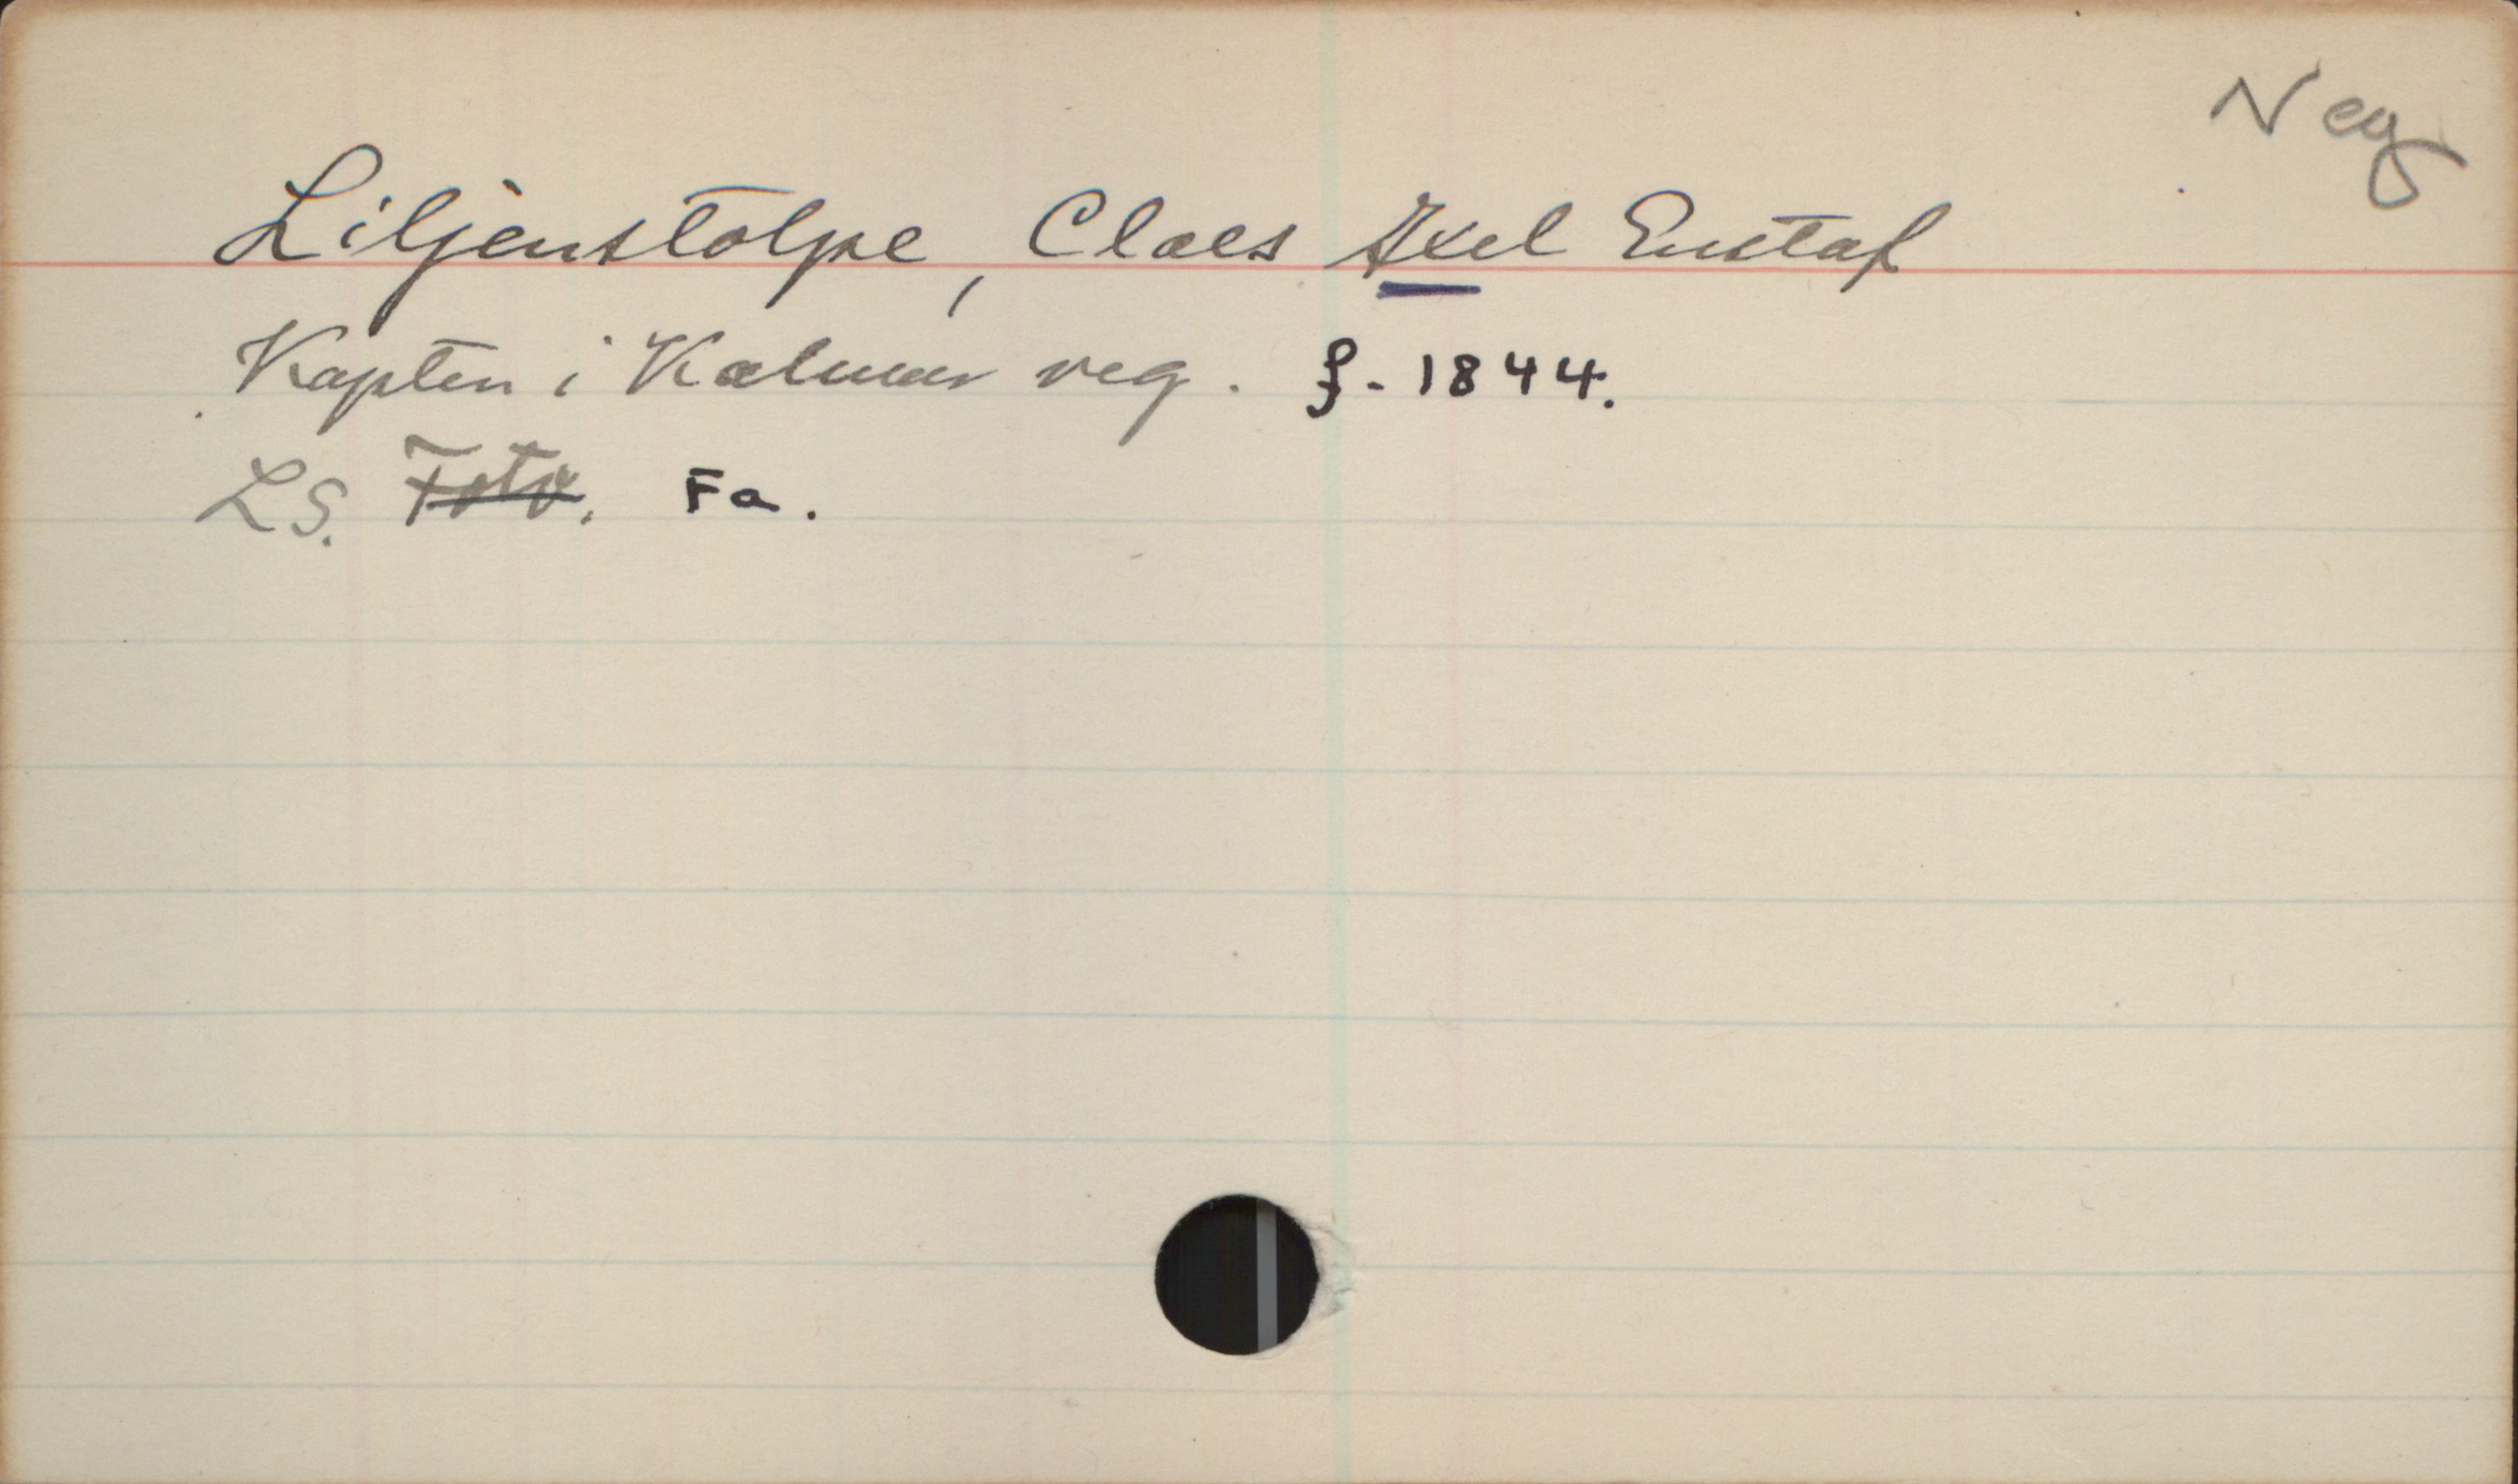 Neg
Liljenstolpe, Claes Axel Gustaf
Kapten i Kalmar reg. f. 1844.
LS. Foto. Fa.